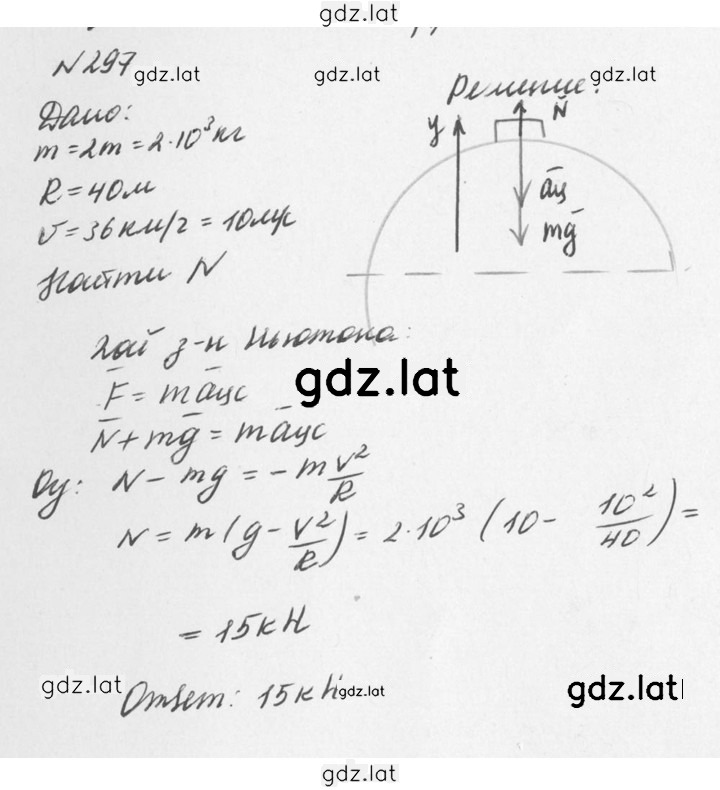 gdz.lat
N 297
gdz.lat gdz.lat gdz.lat
Дано: Решение:
m = 2т = 2·10³ кг
R = 40 м
v = 36 км/ч = 10 м/с
Найти N
y N̄
āц
mḡ
2ой з-н Ньютона:
gdz.lat
F̄ = māцс
N̄ + mḡ = māцс
Oy: N - mg = - m v²/R
N = m (g - v²/R) = 2·10³ (10 - 10²/40) =
= 15 кН
gdz.lat Ответ: 15 кН gdz.lat gdz.lat
gdz.lat